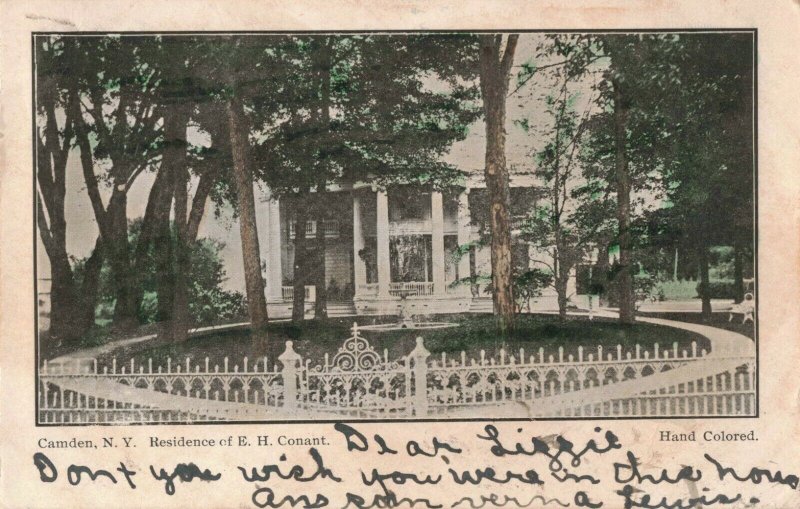 Camden, N. Y. Residence of E. H. Conant. Hand Colored.
Dear Lizzie
Don't you wish you were in this hous
Ans son verna Lewis.